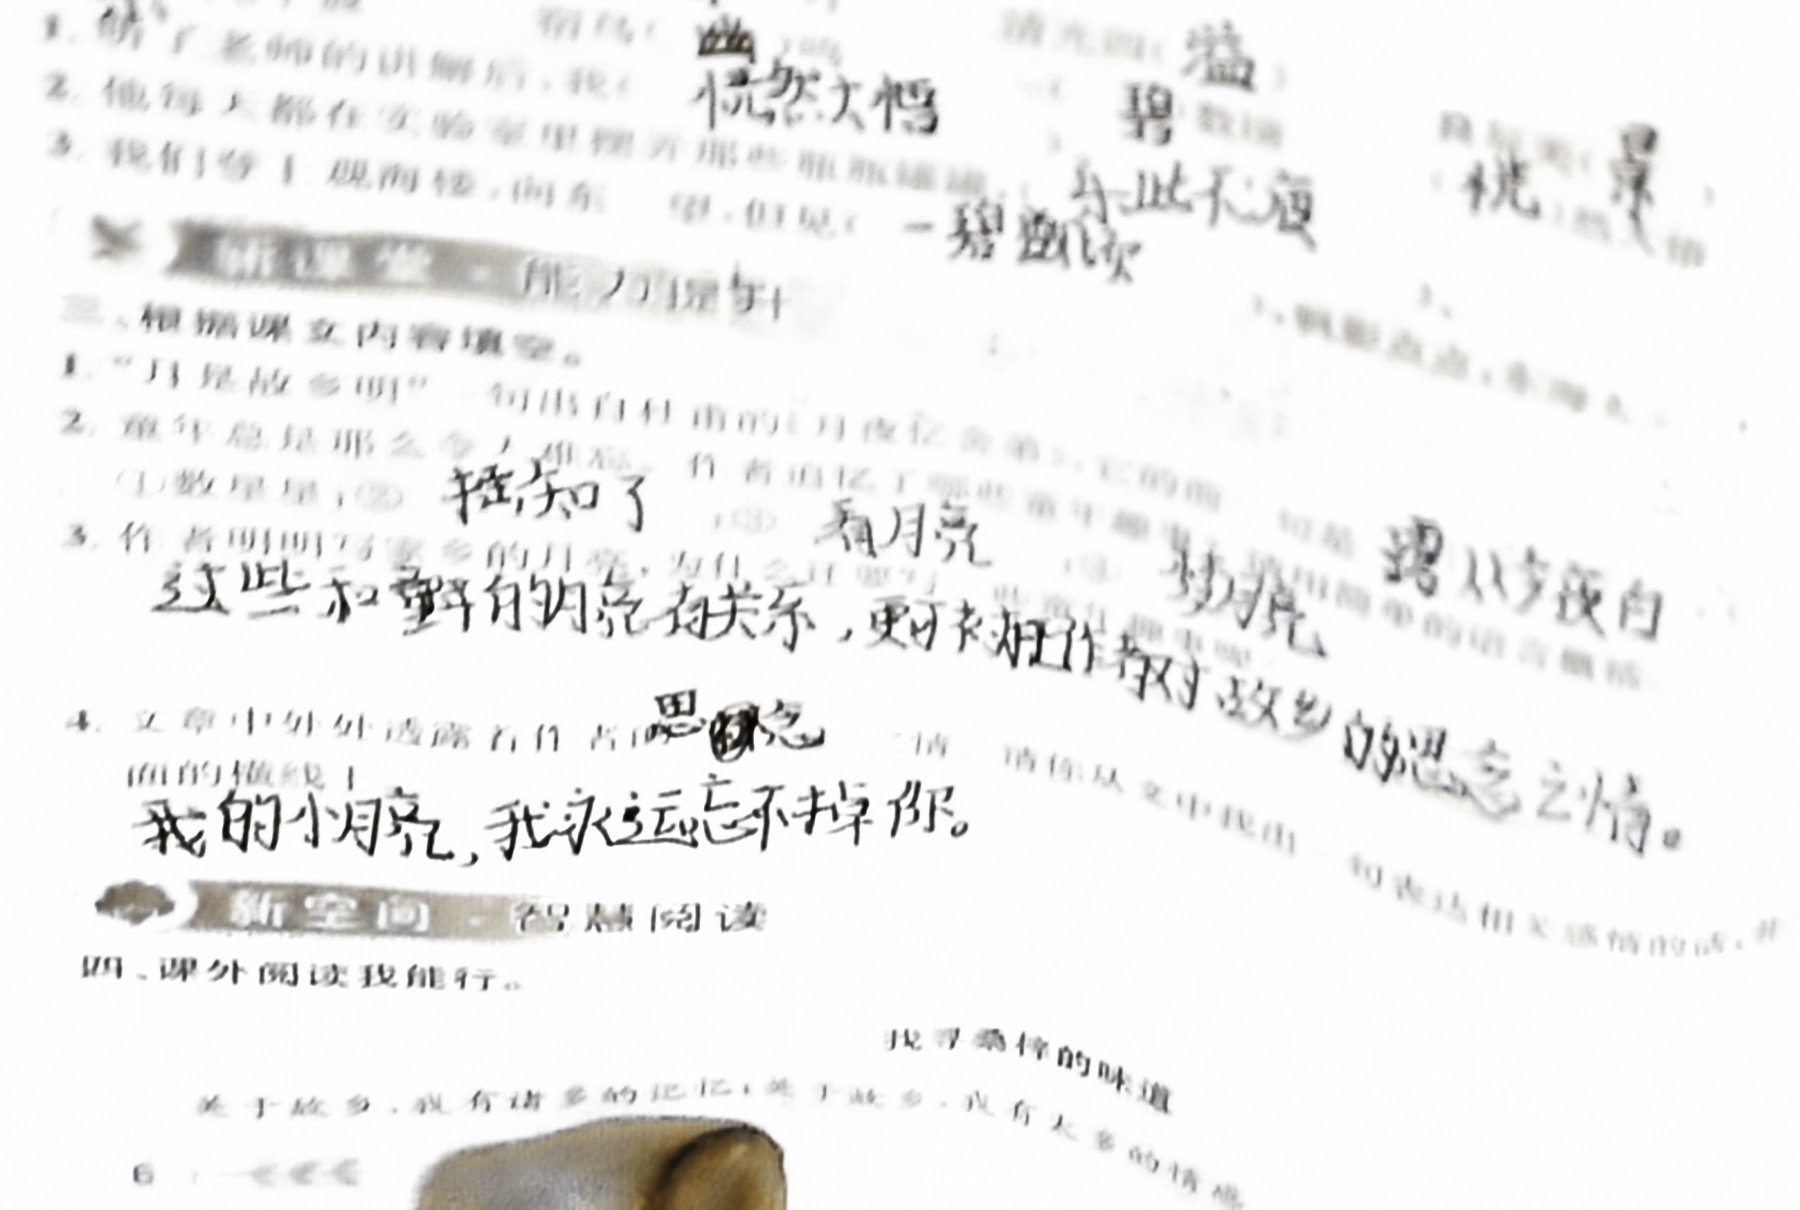 幽 溢
1. 听了老师的讲解后,我( 恍然大悟
碧 晃
2. 他每天都在实验室里摆弄那些瓶瓶罐罐,( 乐此不疲 恍
3. 我们登上观海楼,向东 望,但见( 一碧 ),帆影点点,
新课堂·能力提升
三、根据课文内容填空。
1. “月是故乡明”一句出自杜甫的《月夜忆舍弟》,它的前一句是 露从今夜白
2. 童年总是那么令人难忘。作者追忆了哪些童年趣事?请用简单的语言概括。
①数星星;② 摇知了 ;③ 看月亮 ;④ 梦月亮
3. 作者明明写家乡的月亮,为什么还要写一些童年趣事呢
这些和 的月亮有关系,更 作者对故乡的思念之情。
4. 文章中处处透露着作者的 思 念 之情。请你从文中找出一句表达相关感情的话,
面的横线上
我的小月亮,我永远忘不掉你。
新空间·智慧阅读
四、课外阅读我能行。
找寻桑梓的味道
关于故乡,我有诸多的记忆;关于故乡,我有太多的情感
6